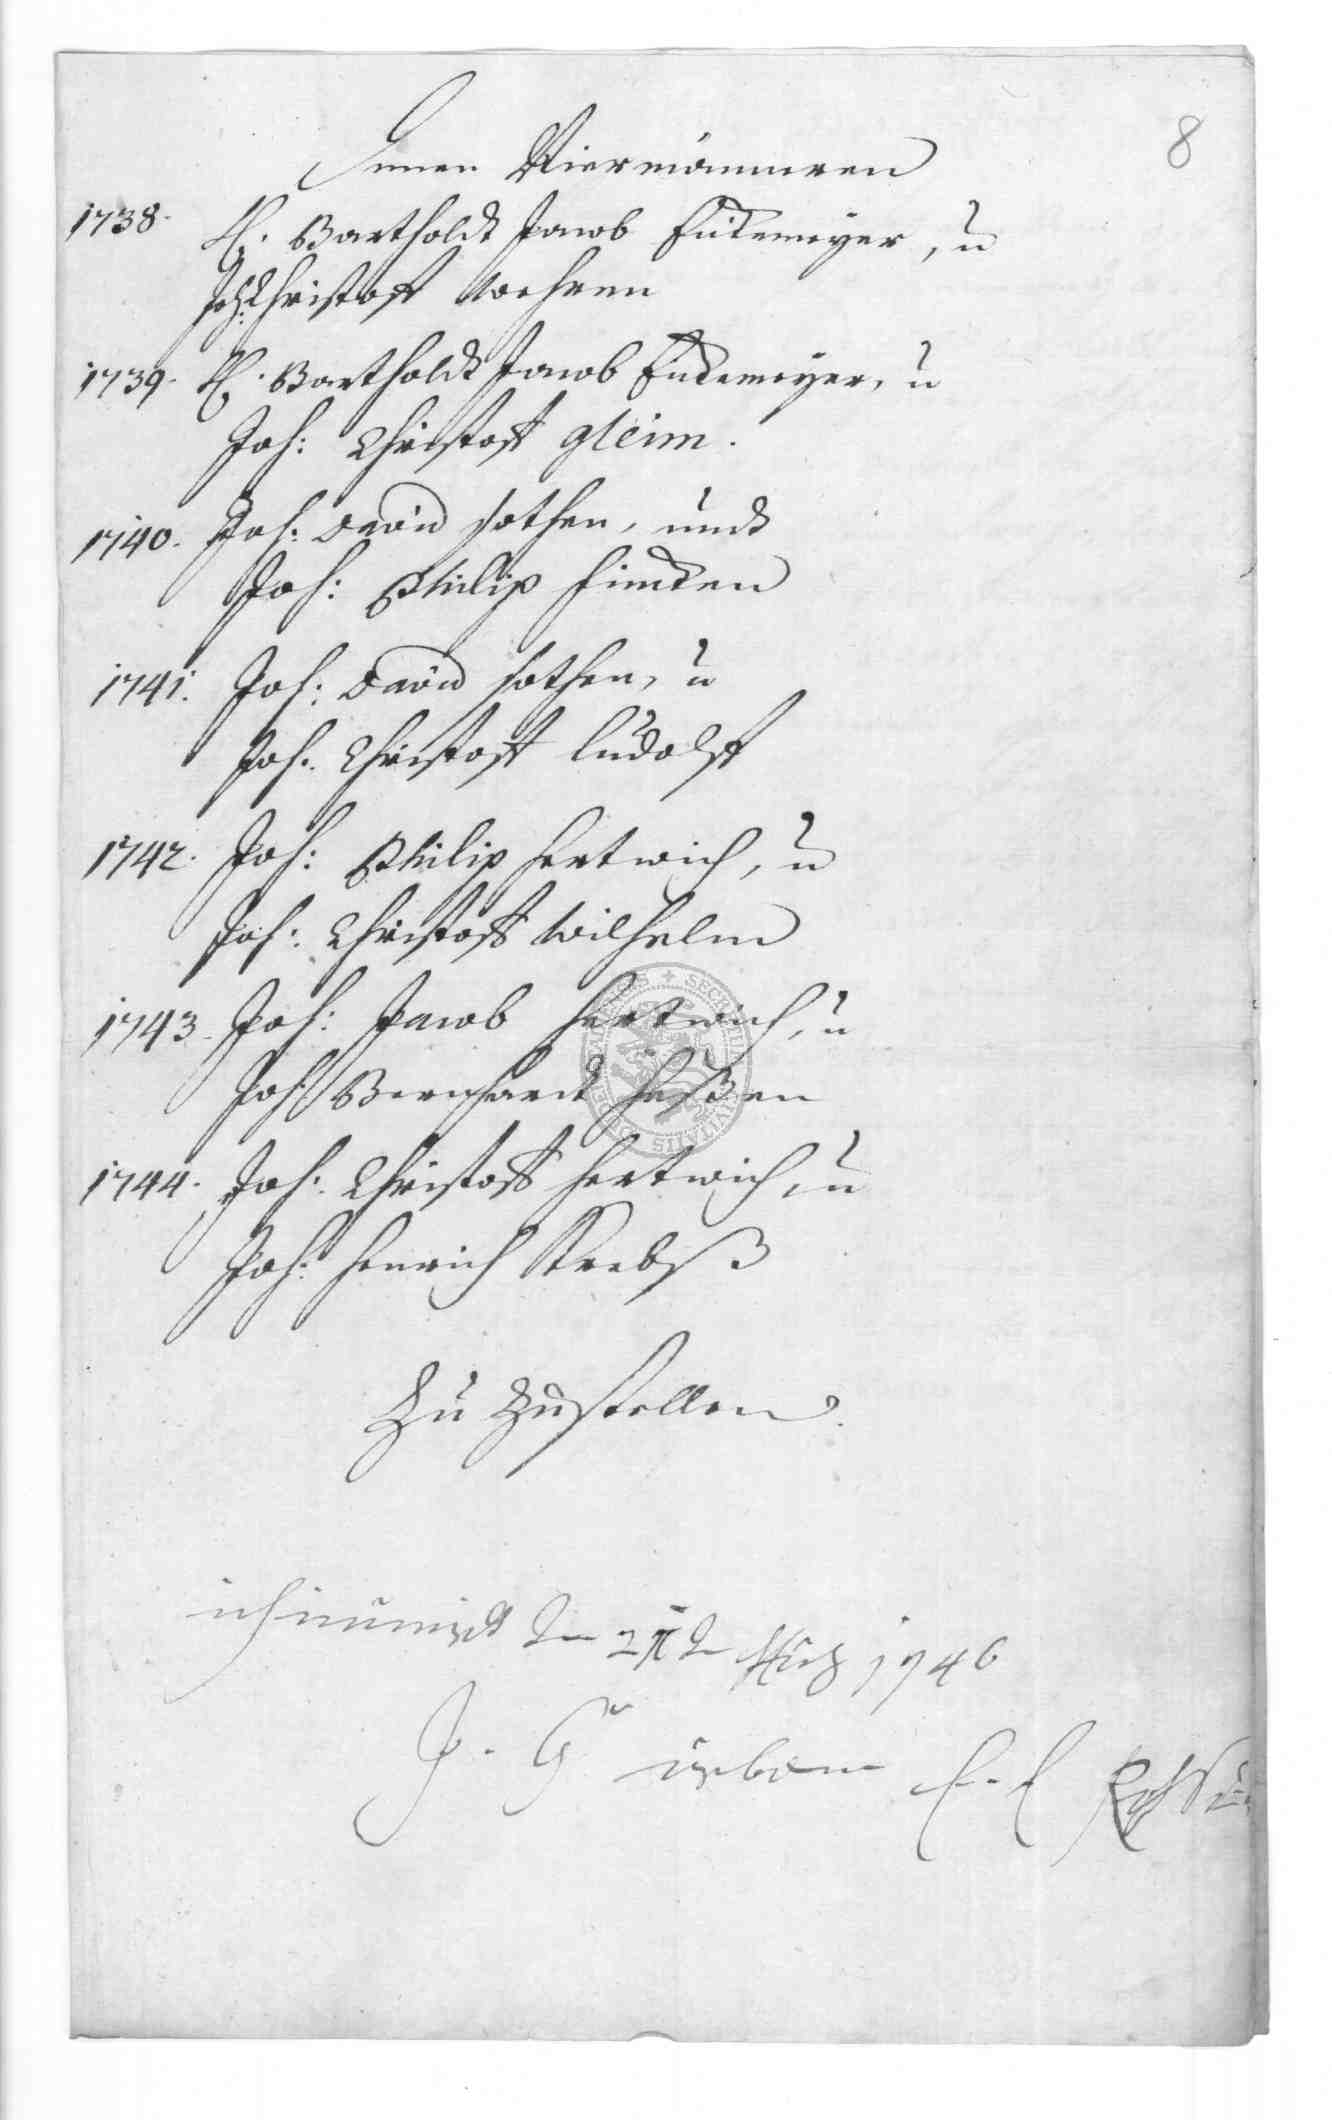 8
Denen Viermänneren
1738. H. Bartholdt Jacob Endemeyer, u
Joh: Christoff Wehren
1739. H. Bartholdt Jacob Endemeyer, u
Joh: Christoff gleim.
1740. Joh: David sothen, undt
Joh: Philip fincken
1741. Joh: David sothen, u
Joh. Christoff ludolff
1742. Joh: Philip hertwich, u
Joh: Christoff Wilhelm
1743. Joh: Jacob hertwich, u
Joh: Bernhardt heßen
1744. Joh. Christoff hertwich, u
Joh: henrich Krebß
Zu Zustellen.
insinuirt den Mertz 1746
J. G urban